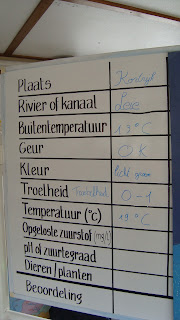 Plaats Kortrijk
Rivier of kanaal Leie
Buitentemperatuur 13°C
Geur OK
Kleur licht groen
Troelheid Troebelheid 0-1
Temperatuur (°c) 19°C
Opgeloste zuurstof (mg/l)
pH of zuurtegraad
Dieren / planten
Beoordeling